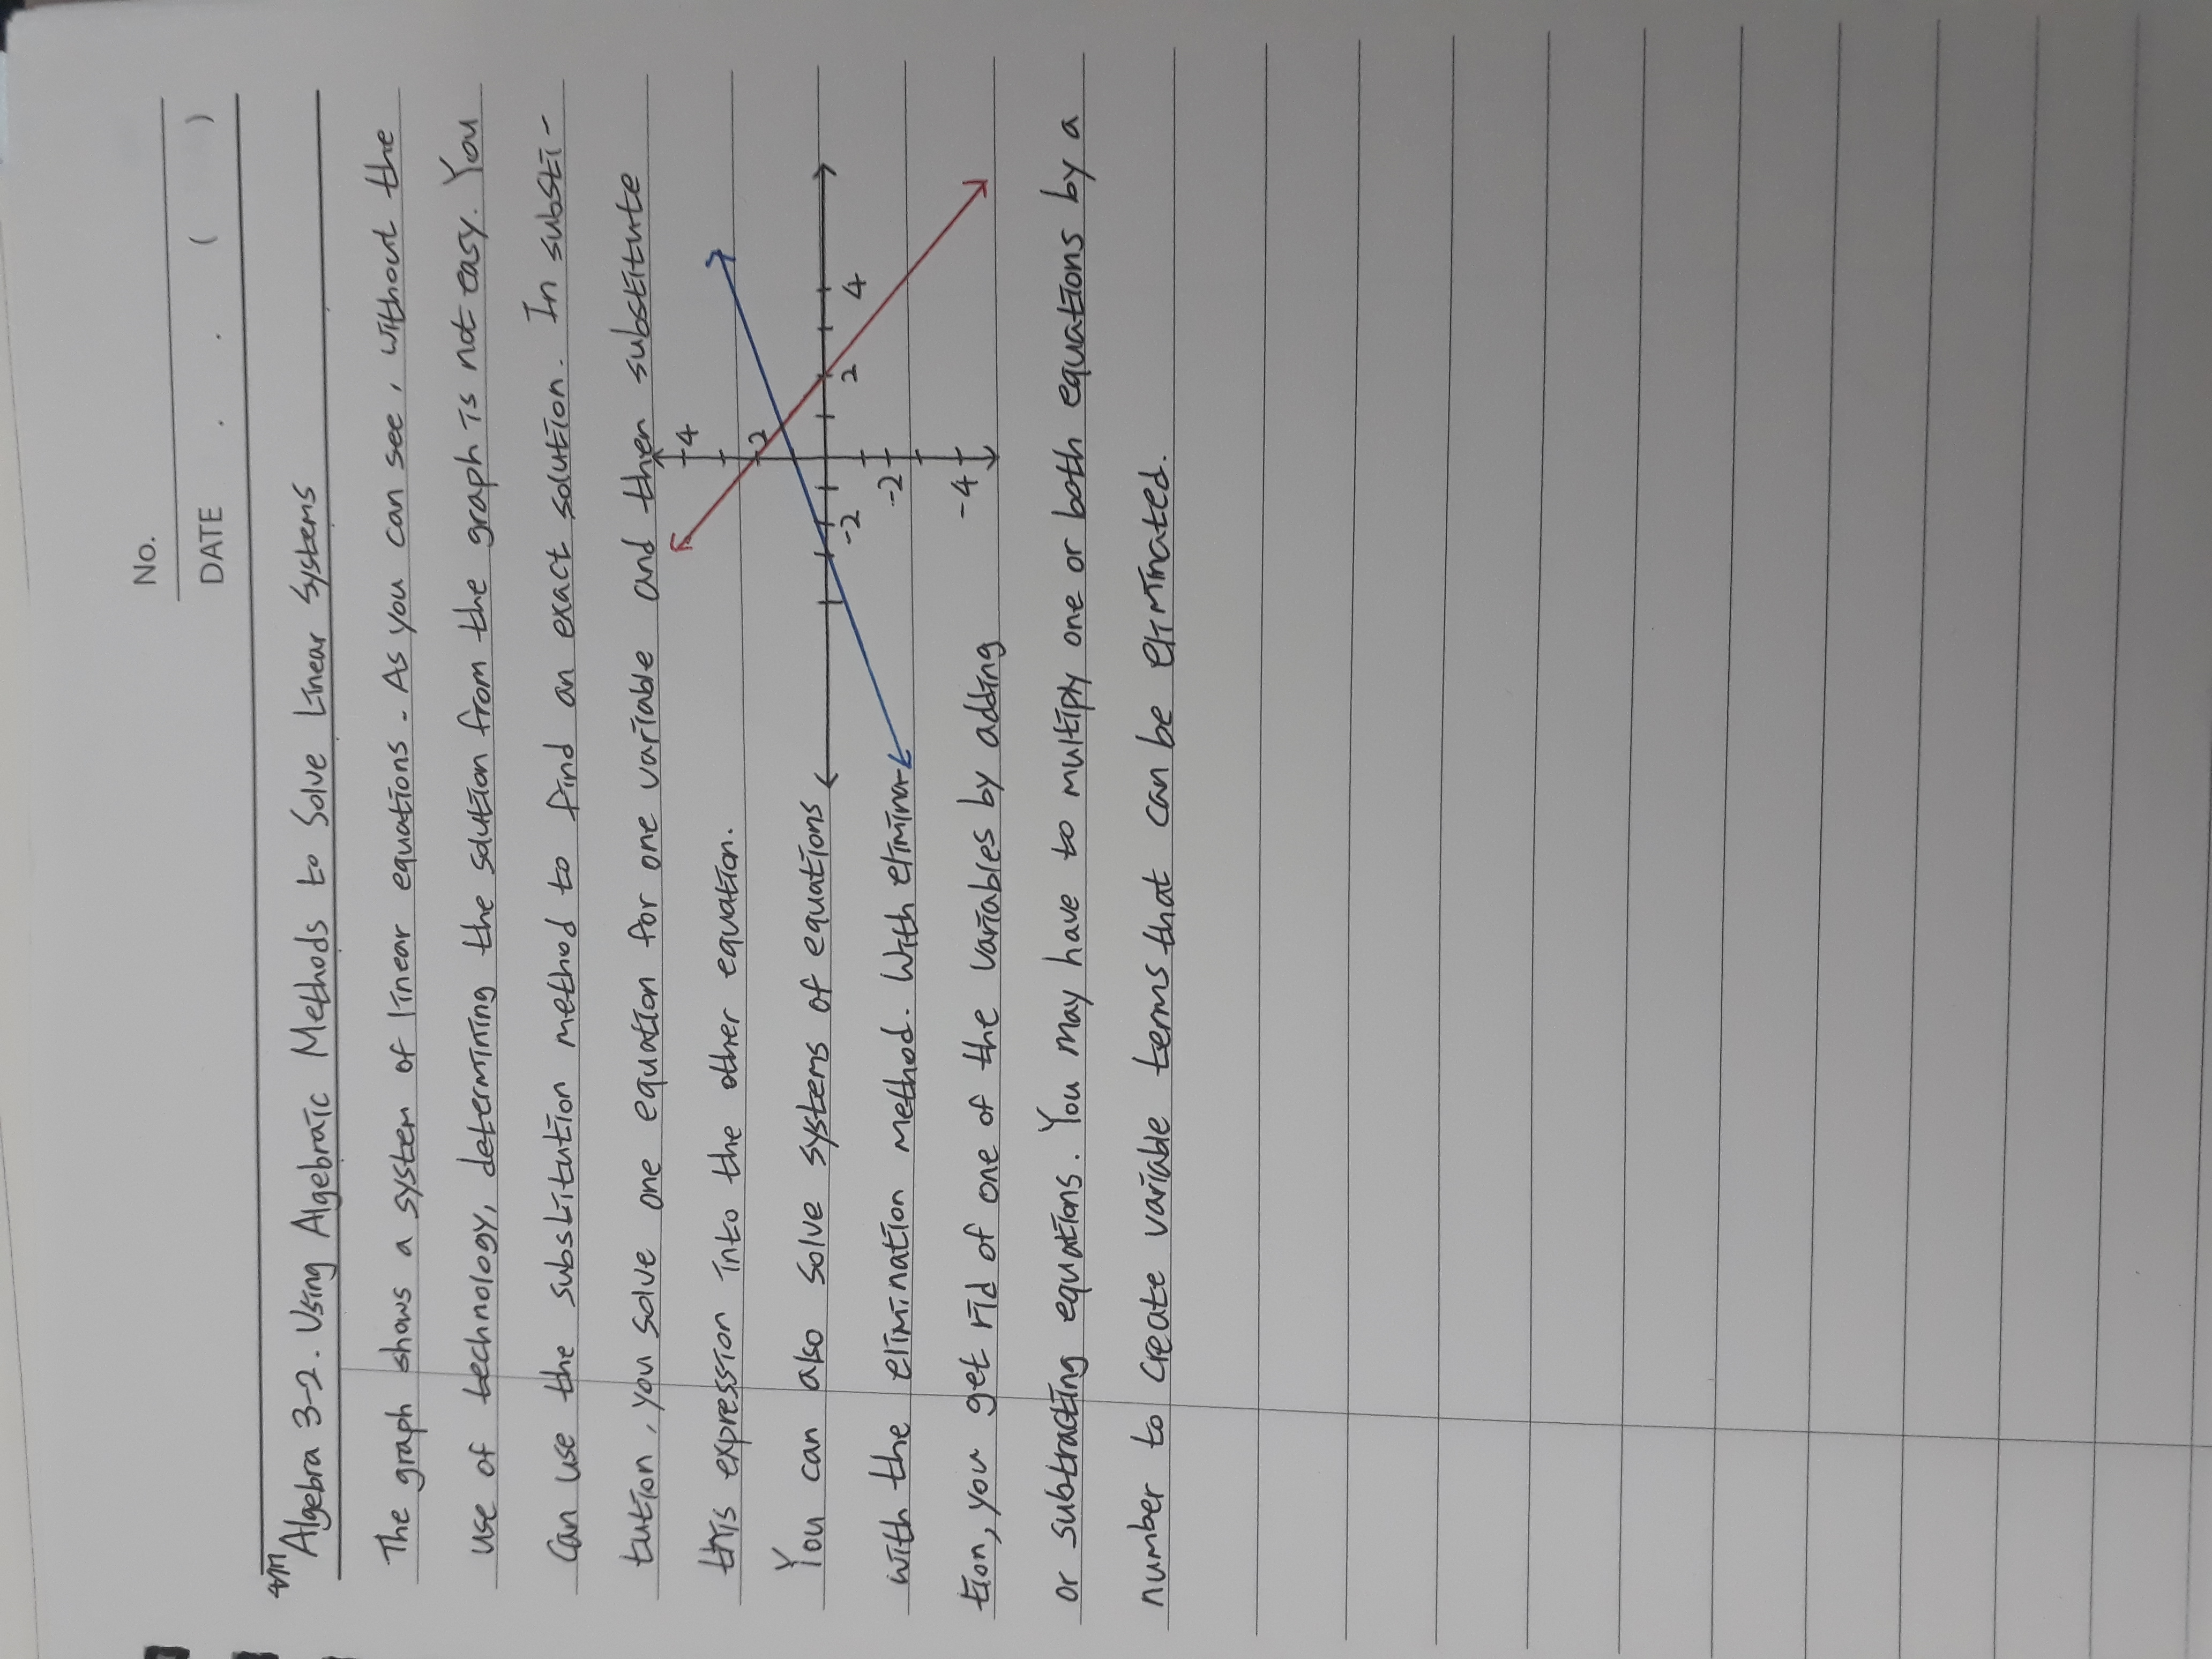 No.
DATE . . ( )
Algebra 3-2. Using Algebraic Methods to Solve Linear Systems
The graph shows a system of linear equations. As you can see, without the
use of technology, determining the solution from the graph is not easy. You
can use the substitution method to find an exact solution. In substi-
tution, you solve one equation for one variable and then substitute
this expression into the other equation.
You can also solve systems of equations
with the elimination method. With elimina-
tion, you get rid of one of the variables by adding
or subtracting equations. You may have to multiply one or both equations by a
number to create variable terms that can be eliminated.
4
2
-2
2
4
-2
-4